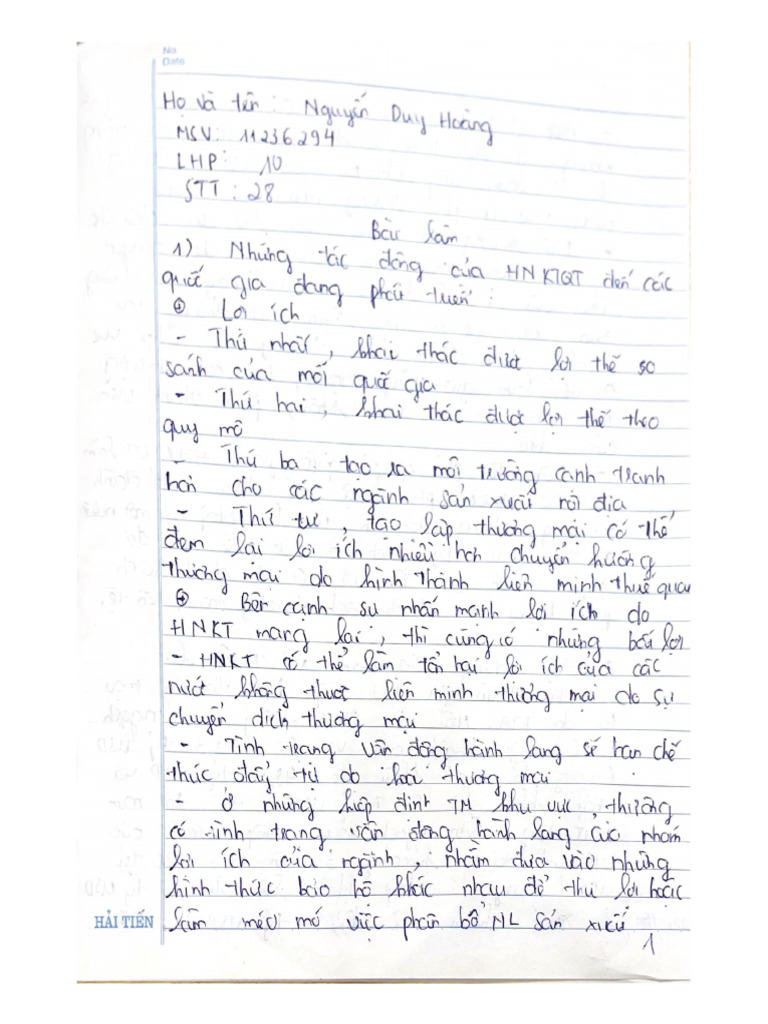 No.
Date
Họ và tên : Nguyễn Duy Hoàng
MSV: 11236294
LHP: 10
STT : 28
Bài làm
1) Những tác động của HNKTQT đến các
quốc gia đang phát triển :
⊕ Lợi ích
- Thứ nhất, khai thác được lợi thế so
sánh của mỗi quốc gia
- Thứ hai, khai thác được lợi thế theo
quy mô
- Thứ ba tạo ra môi trường cạnh tranh
hơn cho các ngành sản xuất nội địa
- Thứ tư, tạo lập thương mại có thể
đem lại lợi ích nhiều hơn chuyển hướng
thương mại do hình thành liên minh thuế quan
⊕ Bên cạnh sự nhấn mạnh lợi ích do
HNKT mang lại, thì cũng có những bất lợi
- HNKT có thể làm tổn hại lợi ích của các
nước không thuộc liên minh thương mại do sự
chuyển dịch thương mại
- Tình trạng vận động hành lang sẽ hạn chế
thúc đẩy tự do hoá thương mại
- Ở những hiệp định TM khu vực, thường
có tình trạng vận động hành lang các nhóm
lợi ích của ngành, nhằm đưa vào những
hình thức bảo hộ khác nhau để thu lợi hoặc
làm méo mó việc phân bổ NL sản xuất
HẢI TIẾN
1